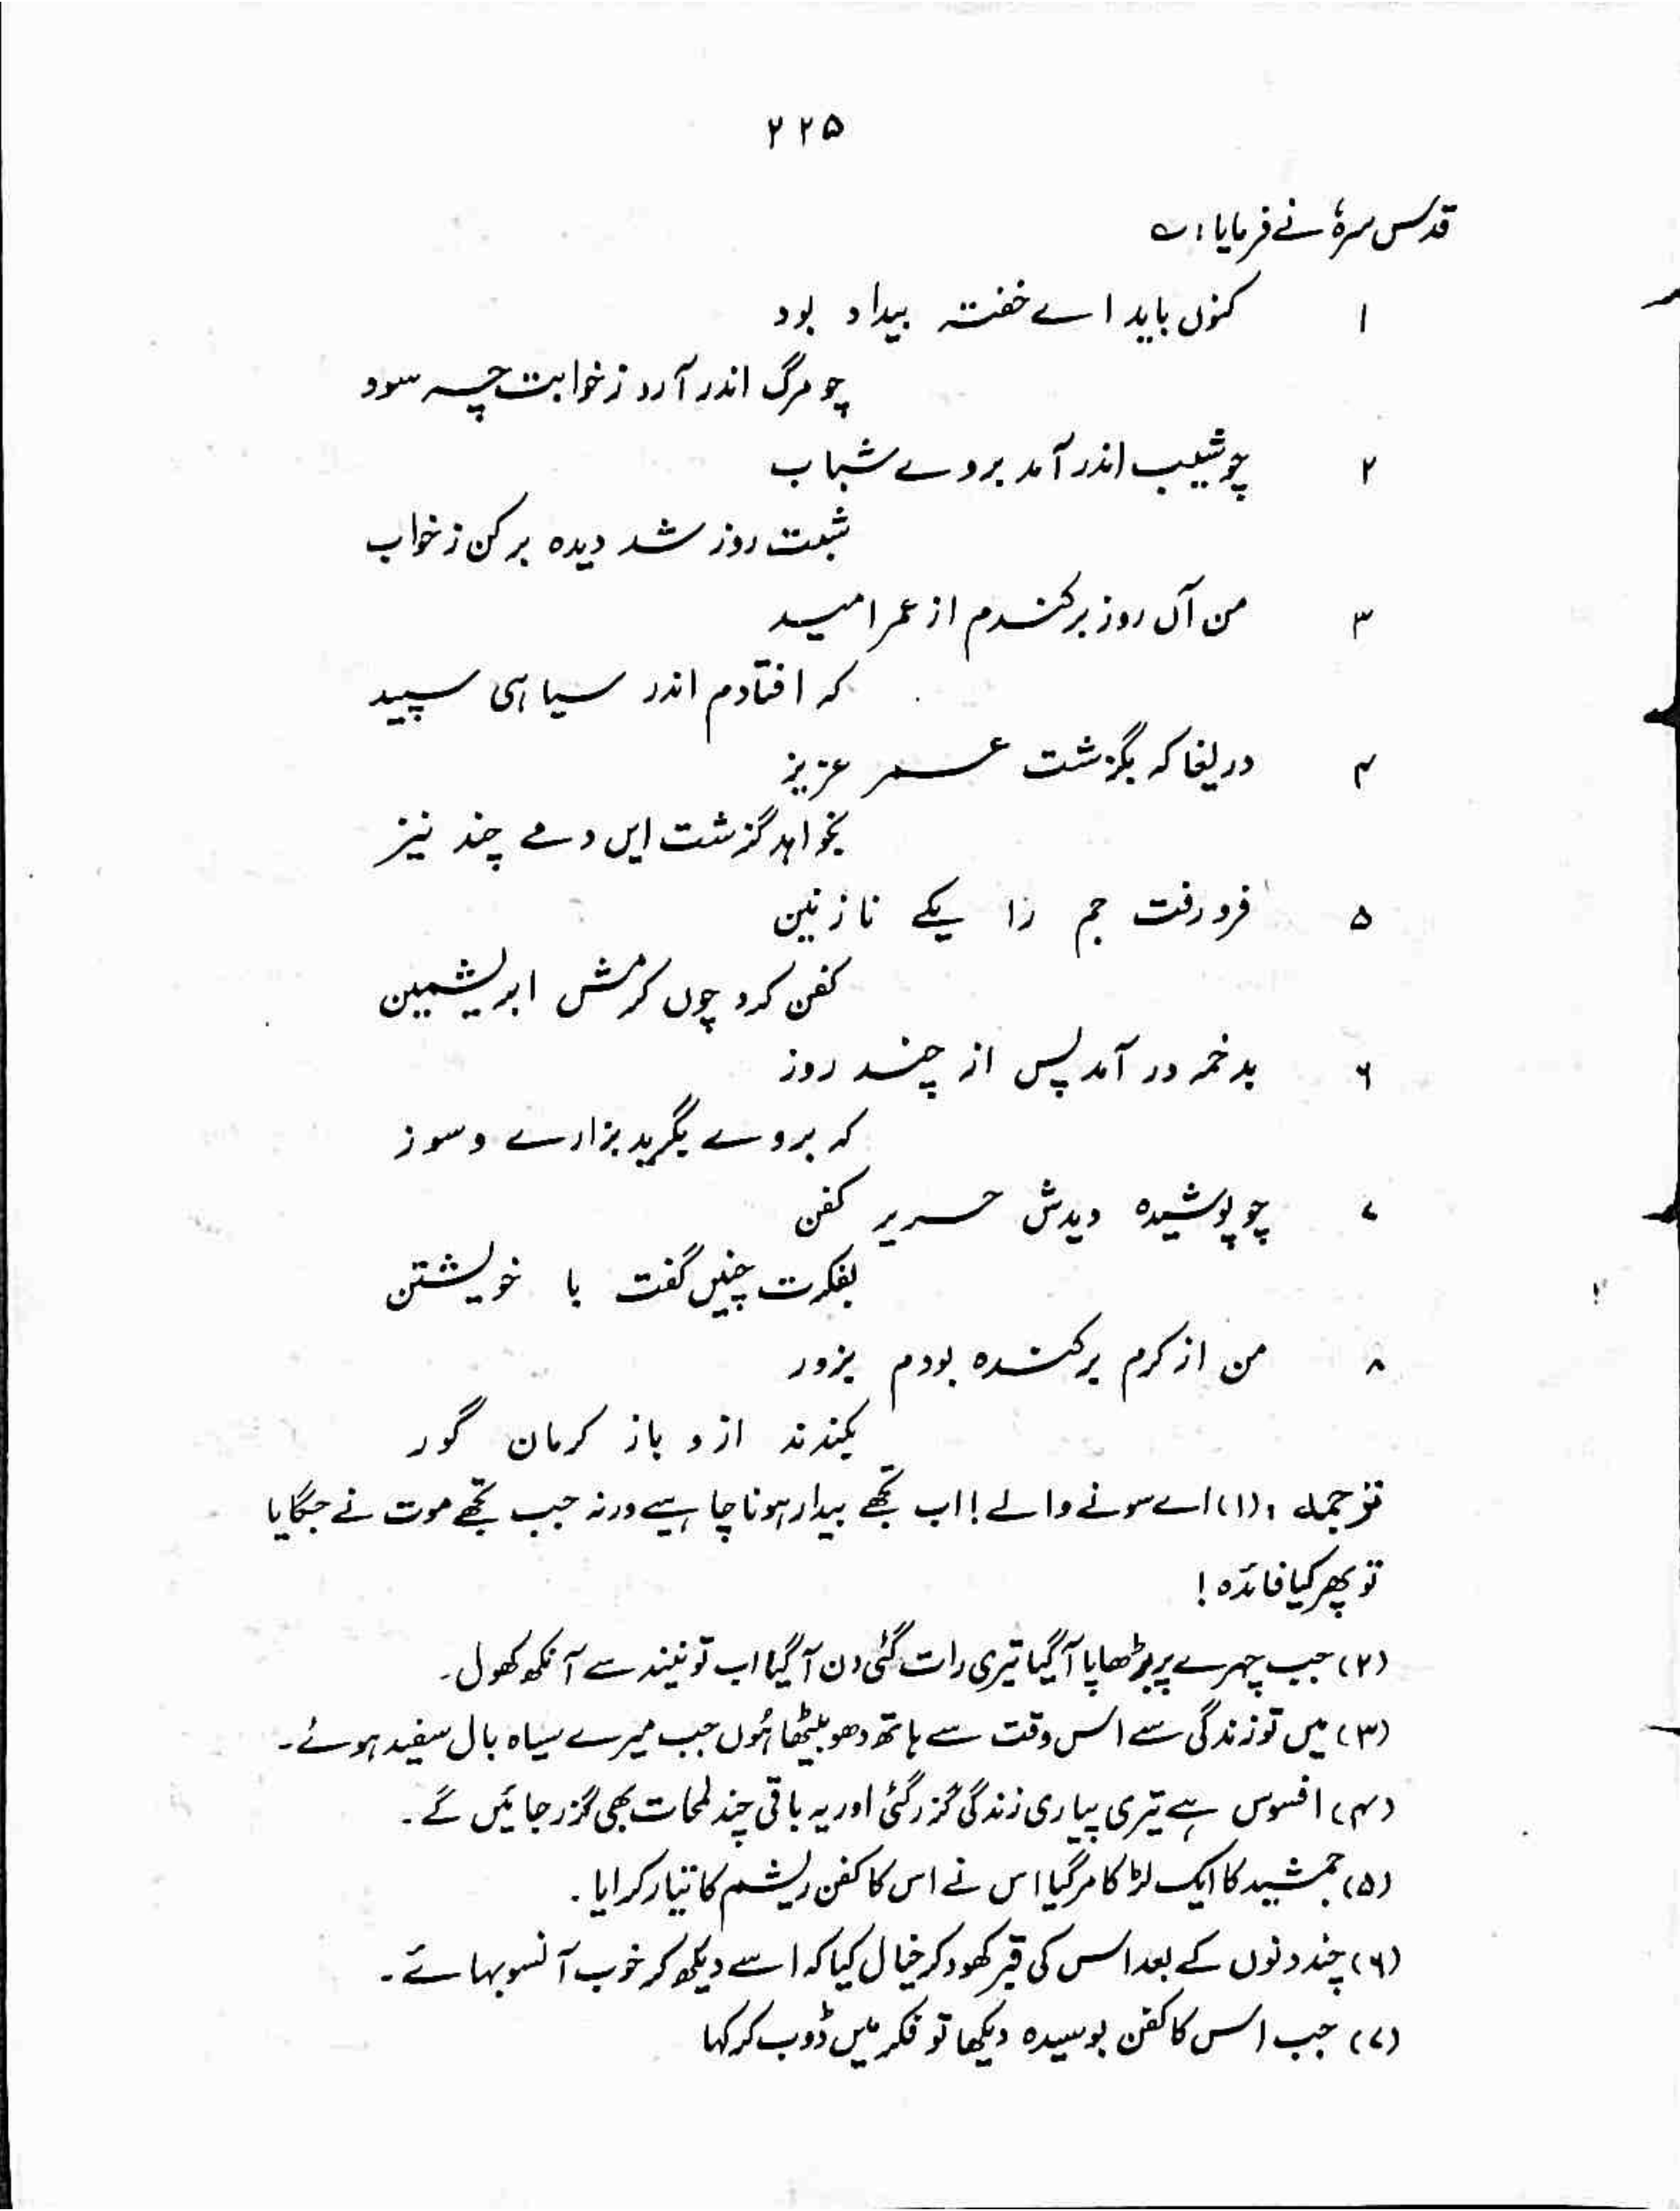 ۲۲۵
قدس سرہٗ نے فرمایا : ؎
۱ کنوں باید اے خفتہ بیدار بود
چو مرگ اندر آرد زخوابت چہ سود
۲ چو شیب اندر آمد بروے شباب
شبت روز شد دیدہ برکن زخواب
۳ من آں روز برکندم از عمر امید
کہ افتادم اندر سیاہی سپید
۴ دریغا کہ بگزشت عمر عزیز
بخواہد گزشت ایں دمے چند نیز
۵ فرو رفت جم را یکے نازنین
کفن کرد چوں کرمش ابریشمین
۶ بدخمہ در آمد پس از چند روز
کہ بروے بگرید بزارے و سوز
۷ چو پوشیدہ دیدش حریر کفن
بفکرت چنیں گفت با خویشتن
۸ من از کرم برکندہ بودم بزور
بکندند ازو باز کرمان گور
ترجمہ : (۱) اے سونے والے ! اب تجھے بیدار ہونا چاہیے ورنہ جب تجھے موت نے جگایا
تو پھر کیا فائدہ !
(۲) جب چہرے پر بڑھاپا آگیا تیری رات گئی دن آگیا اب تو نیند سے آنکھ کھول۔
(۳) میں تو زندگی سے اس وقت سے ہاتھ دھو بیٹھا ہُوں جب میرے سیاہ بال سفید ہوئے۔
(۴) افسوس ہے تیری پیاری زندگی گزر گئی اور یہ باقی چند لمحات بھی گزر جائیں گے۔
(۵) جمشید کا ایک لڑکا مرگیا اس نے اس کا کفن ریشم کا تیار کرایا۔
(۶) چند دنوں کے بعد اس کی قبر کھود کر خیال کیا کہ اسے دیکھ کر خوب آنسو بہائے۔
(۷) جب اس کا کفن بوسیدہ دیکھا تو فکر میں ڈوب کر کہا